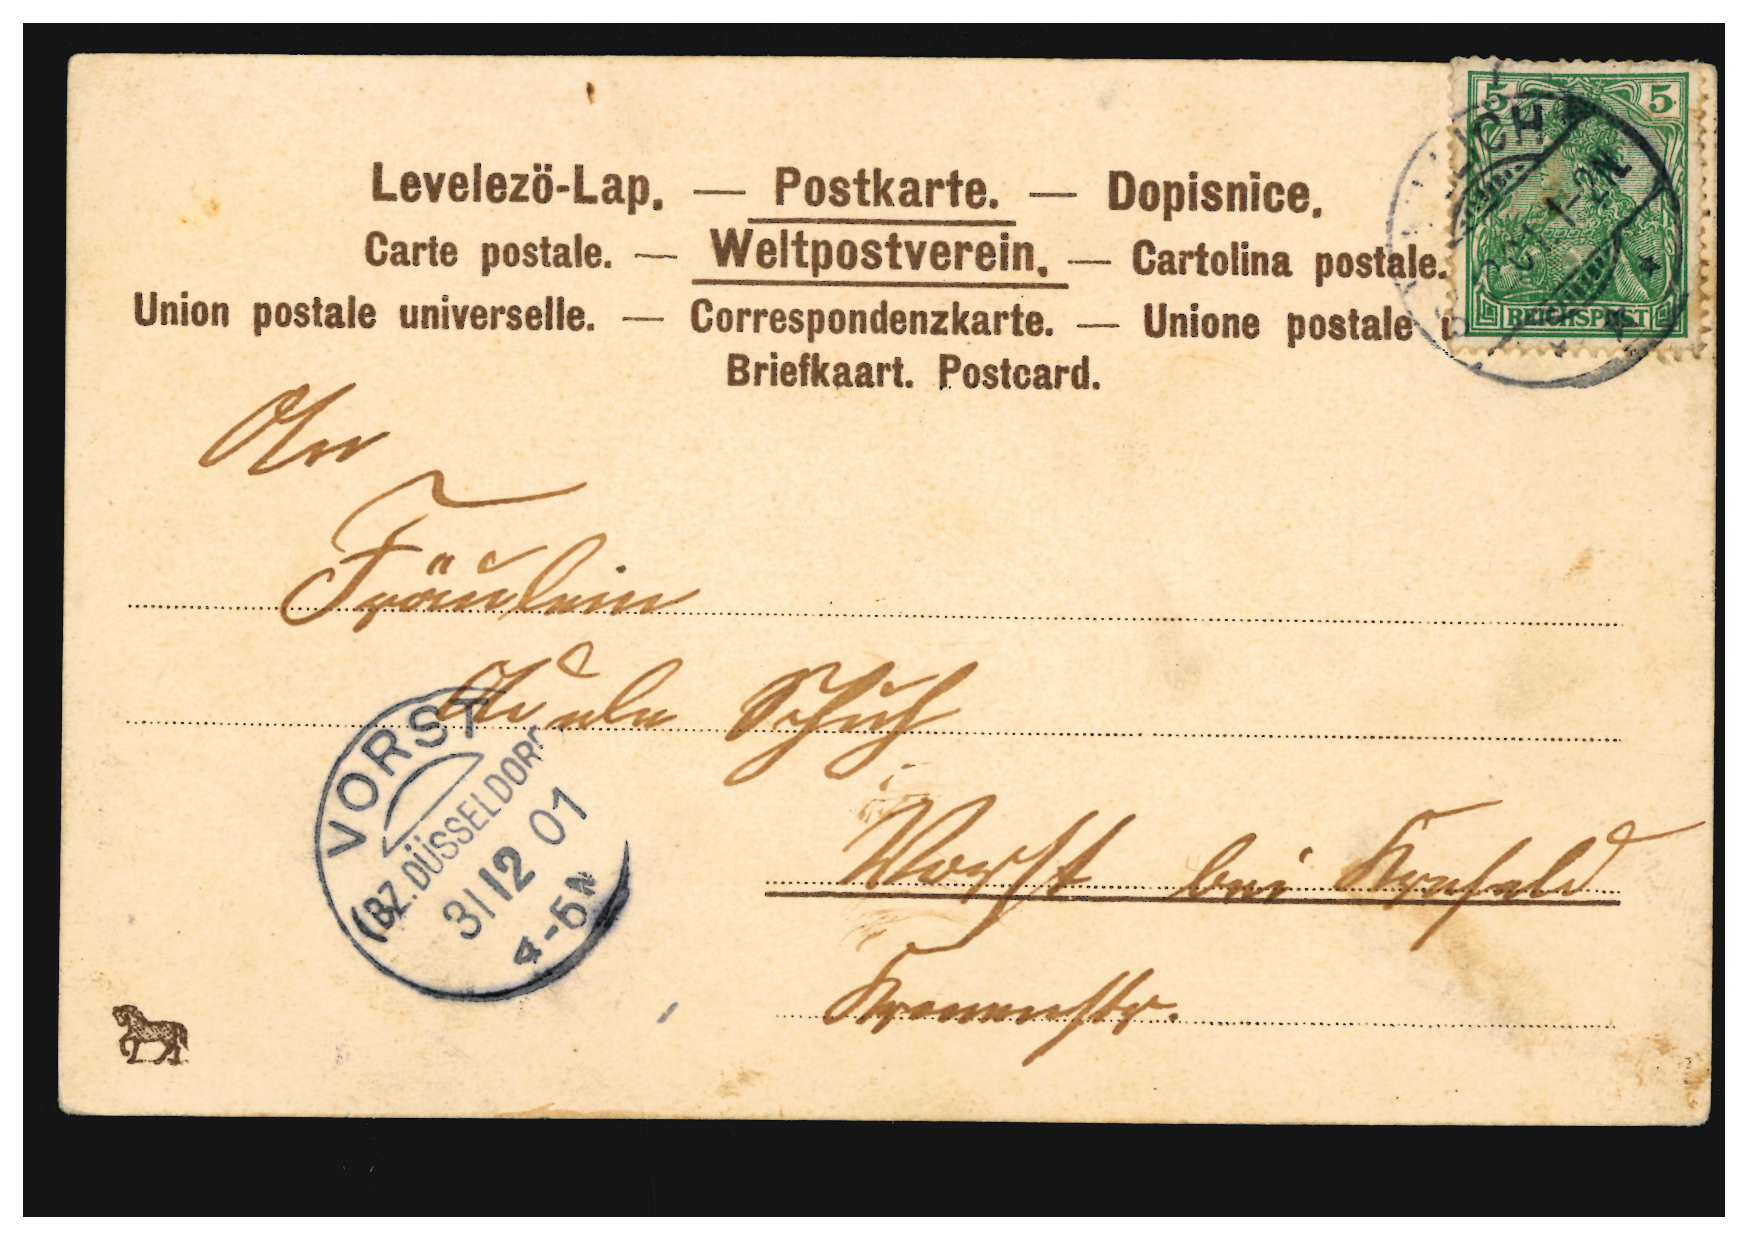 Levelezö-Lap. — Postkarte. — Dopisnice.
Carte postale. — Weltpostverein. — Cartolina postale.
Union postale universelle. — Correspondenzkarte. — Unione postale u
Briefkaart. Postcard.
5 5
REICHSPOST
1-2N
An
Fräulein
Schuh
Vorst bei Krefeld
Kronenstr.
VORST
(BZ. DÜSSELDORF
31 12 01
4-5N